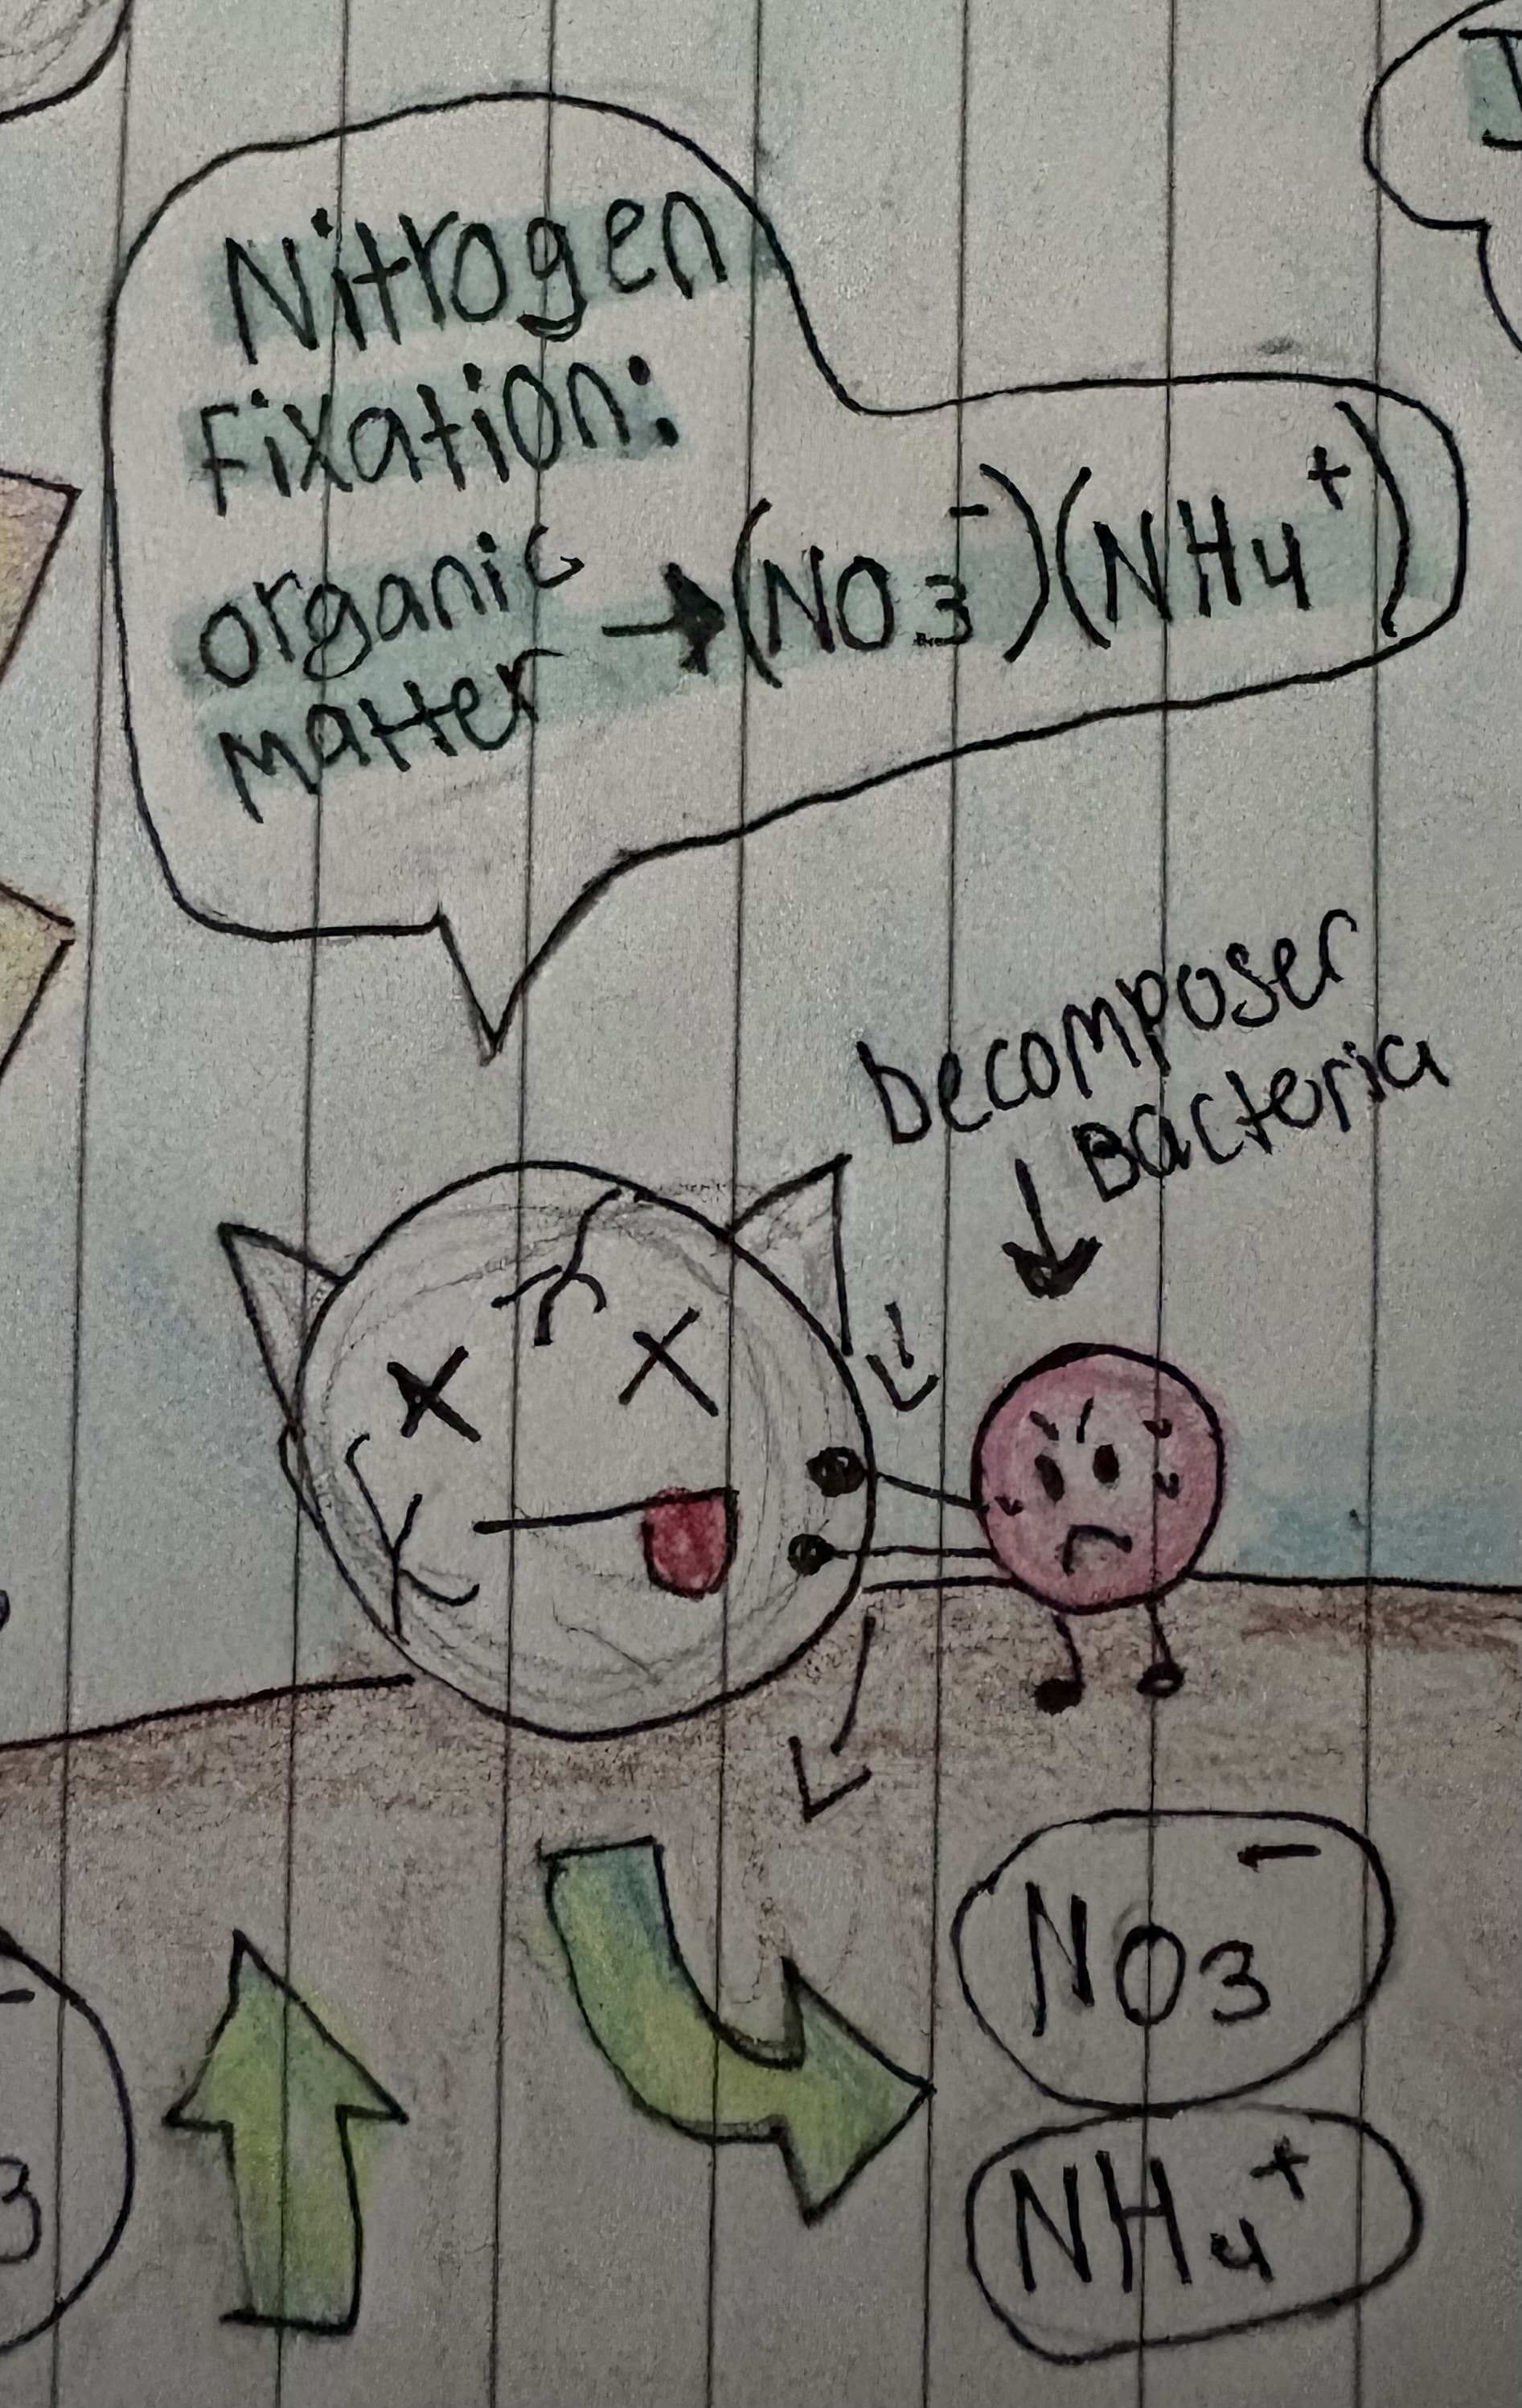 Nitrogen
Fixation:
organic
matter → (NO3⁻)(NH4⁺)
Decomposer
Bacteria
NO3⁻
NH4⁺
3⁻